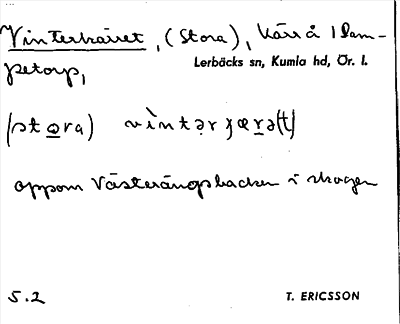 Vinterkärret, (Stora), kärr å Lam-
petorp,
Lerbäcks sn, Kumla hd, Ör. l.
(stora)
oppom Västerängsbacken i skogen
5.2
T. ERICSSON